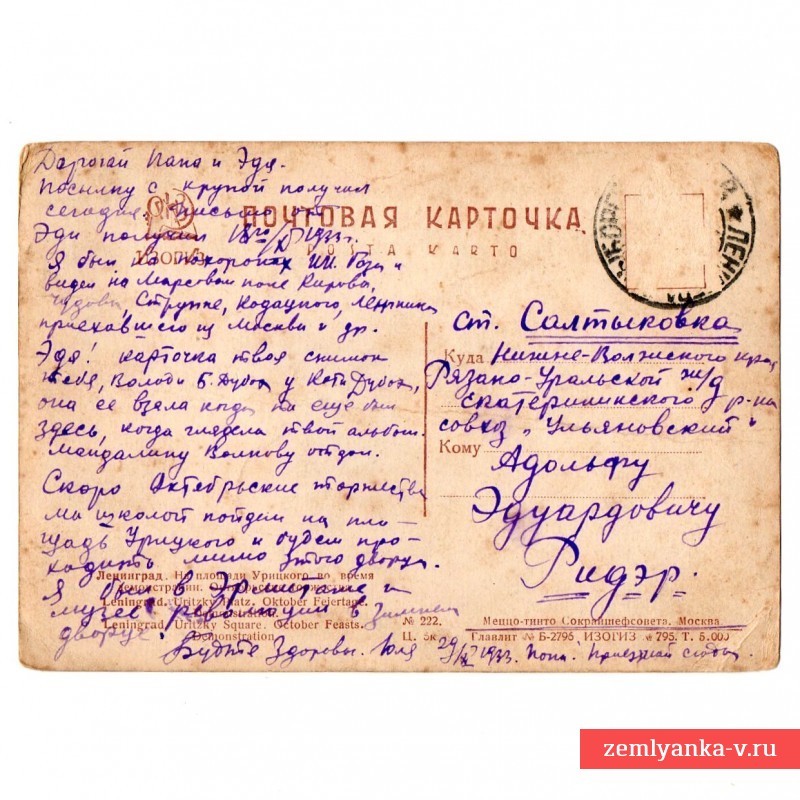 Дорогай Папа и Эдя.
Посылку с крупой получил
сегодня, письмо от
Эди получил 1933 г.
ПОЧТОВАЯ КАРТОЧКА
POŜTA KARTO
ИЗОГИЗ
Я был на похоронах и
видел на Марсовом поле Кирова,
Чудова, Струппе, Кодацкого,
приехавшего из Москвы и др.
Эдя! карточка твоя снимок
тебя, Володи Б. Дубок у Кати Дубок,
она её взяла когда ты еще был
здесь, когда глядела твой альбом.
мандалину Волкову отдал.
Скоро Октябрьские торжества
мы школой пойдем на пло-
щадь Урицкого и будем про-
ходить мимо этого дворца.
Я был в Эрмитаже и
музее революции в Зимнем
дворце.
Будьте Здоровы. Юля 29/X 1933. Папа. Приезжай сюда.
Ленинград. На площади Урицкого во время
Leningrad. Uritzky Platz. Oktober Feiertage.
Demonstration.
Leningrad. Uritzky Square. October Feasts.
Demonstration
№ 222.
Ц. 5к
ст. Салтыковка
Куда Нижне-Волжского края
Рязано-Уральской ж/д
Екатерининского р-на
совхоз „Ульяновский"
Кому Адольфу
Эдуардовичу
Ридэр.
Меццо-тинто Сокрайшефсовета. Москва
Главлит № Б-2795 ИЗОГИЗ № 795. Т. 5.000
ЛЕНИ
zemlyanka-v.ru